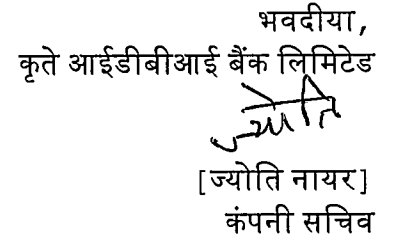 भवदीया,
कृते आईडीबीआई बैंक लिमिटेड
ज्योति
[ज्योति नायर]
कंपनी सचिव